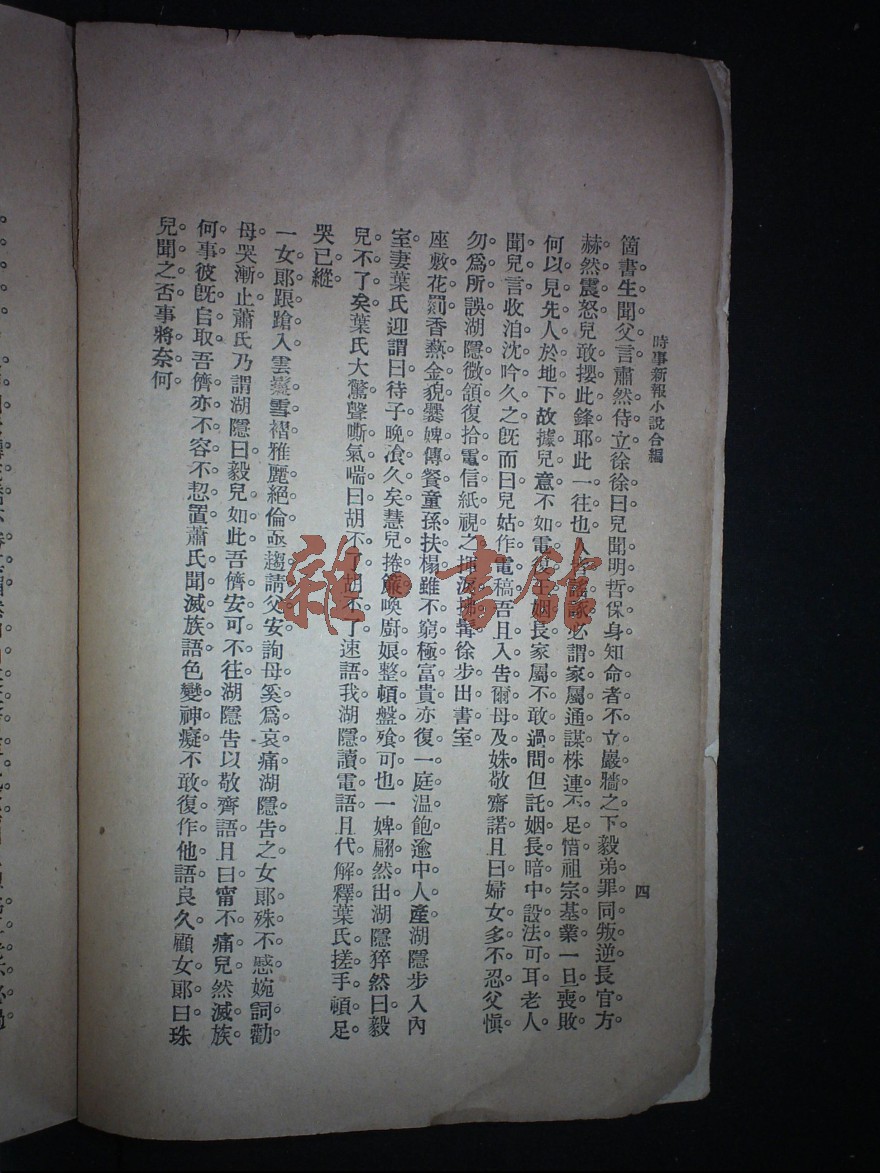 時事新報小說合編
四
箇書生聞父言肅然侍立徐徐曰兒聞明哲保身知命者不立巖牆之下毅弟罪同叛逆長官方
赫然震怒兒敢攖此鋒耶此一往也人皆謠諑必謂家屬通謀株連不足惜祖宗基業一旦喪敗
何以見先人於地下故據兒意不如電復王姻長家屬不敢過問但託姻長暗中設法可耳老人
聞兒言收泊沈吟久之旣而曰兒姑作電稿吾且入告爾母及妹敬齋諾且曰婦女多不忍父愼
勿爲所誤湖隱微頷復拾電信紙視之揮淚拂髯徐步出書室
座敷花罽香爇金貌爨婢傳餐童孫扶榻雖不窮極富貴亦復一庭温飽逾中人產湖隱步入內
室妻葉氏迎謂曰待子晚飡久矣慧兒捲簾喚廚娘整頓盤飱可也一婢翩然出湖隱猝然曰毅
兒不了矣葉氏大驚聲嘶氣喘曰胡不了胡不了速語我湖隱讀電語且代解釋葉氏搓手頓足
哭已縱
一女郞踉蹌入雲鬟雪褶雅麗絕倫亟趨請父安詢母奚爲哀痛湖隱告之女郞殊不慼婉詞勸
母哭漸止蕭氏乃謂湖隱曰毅兒如此吾儕安可不往湖隱告以敬齊語且曰甯不痛兒然滅族
何事彼旣自取吾儕亦不容不恝置蕭氏聞滅族語色變神癡不敢復作他語良久顧女郞曰珠
兒聞之否事將奈何
雜·書館